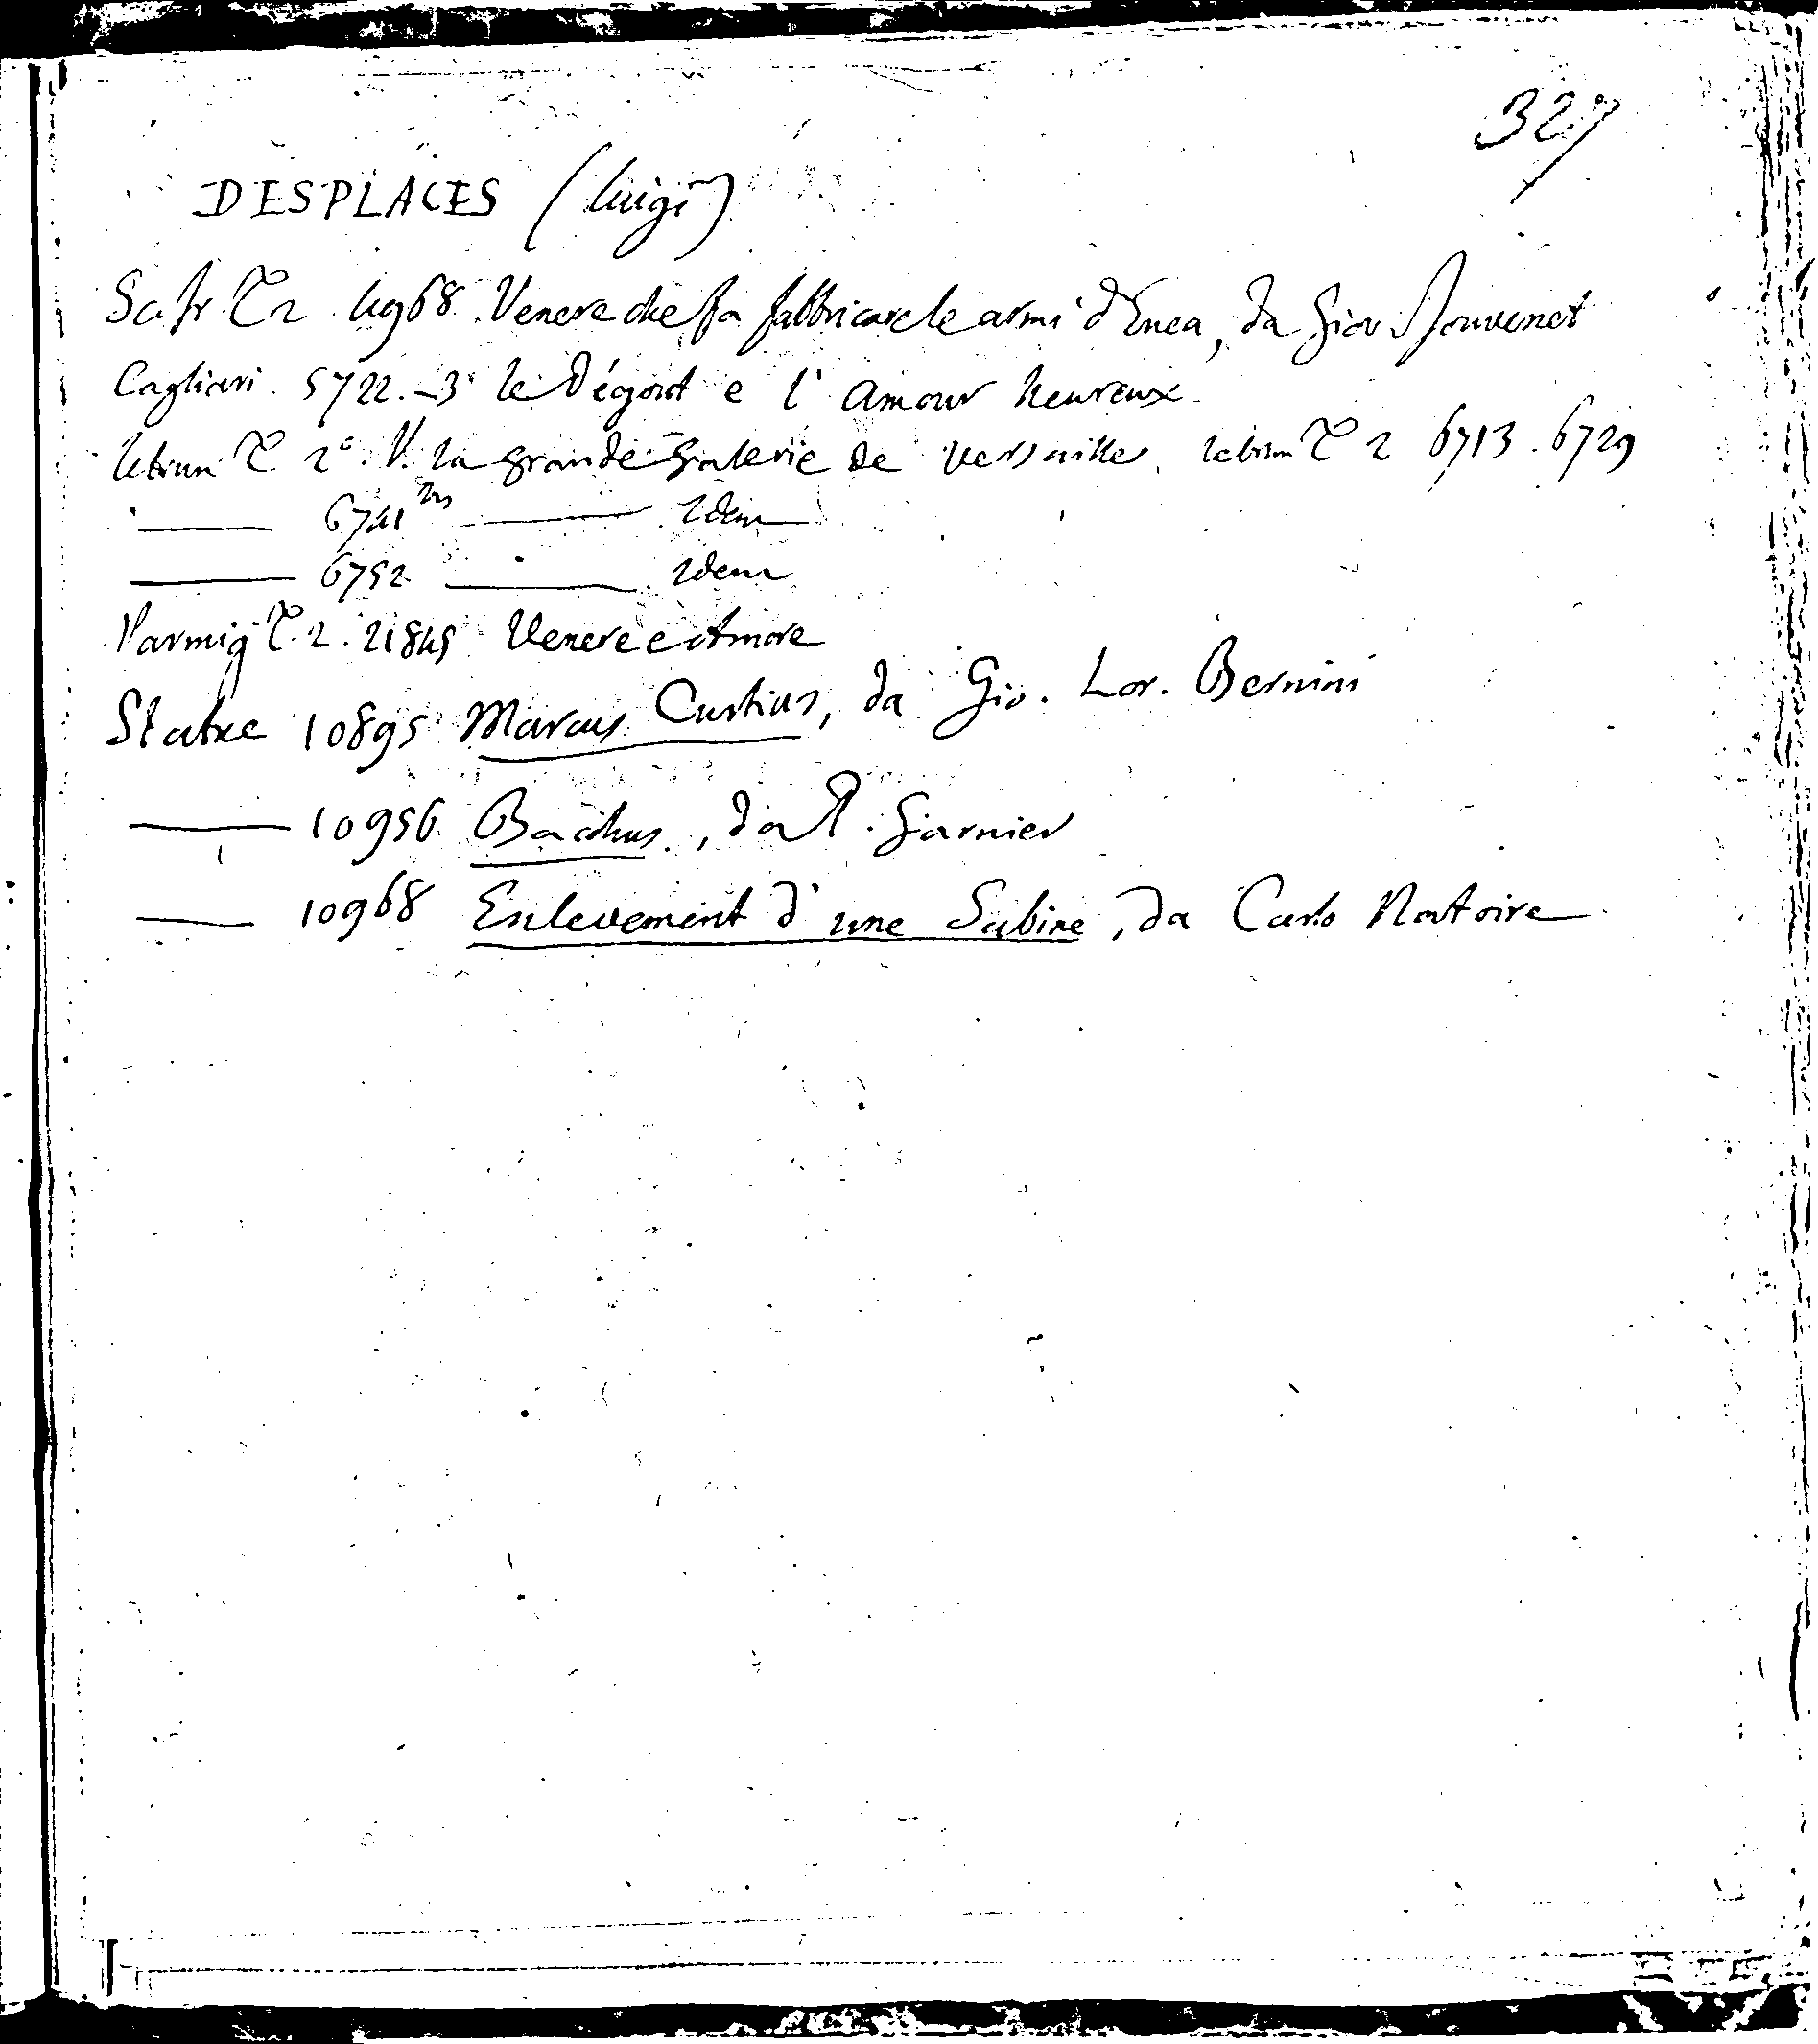 327
DESPLACES (Luigi)
Sc. fr. T. 2 4968. Venere che fa fabbricare le armi d'Enea, da Giov. Jouvenet
Cagliari. 5722._3 le Dégout e l'Amour heureux.
lebrun T 2°. V. la grande Galerie de Versailles. lebrun T 2 6713. 6729
—— 6741 —— Idem
—— 6752 —— Idem
Parmig T. 2. 21845 Venere e Amore
Statue 10895 Marcus Curtius, da Gio. Lor. Bernini
—— 10956 Bacchus, da P. Garnier
—— 10968 Enlevement d'une Sabine, da Carlo Natoire